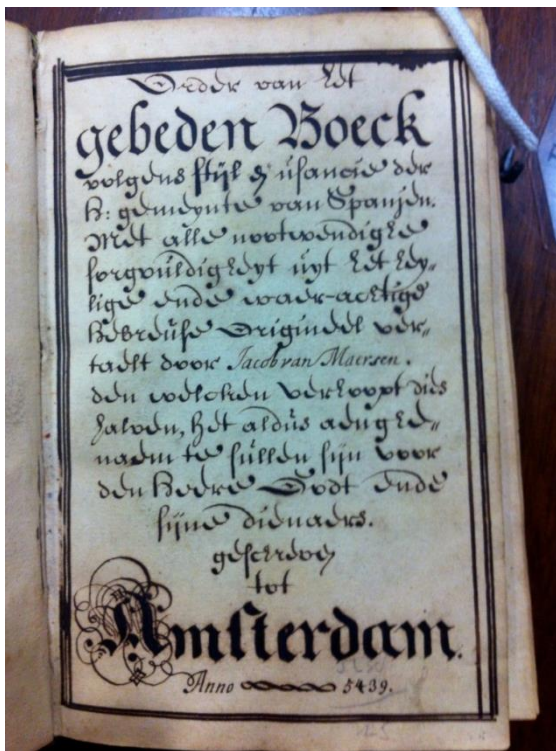 Order van het
gebeden Boeck
volgens stijl & usancie der
H: gemeynte van Spanjen.
Met alle nootwendighe
sorgvuldigheyt uyt het hey„
lige ende waer-achtige
Hebreuse Origineel ver„
taelt door Jacob van Maersen.
den welcken verhoopt dies
halven, het aldus aenghe„
naem te sullen sijn voor
den Heere Godt ende
sijne dienaers.
geschreven
tot
Amsterdam.
Anno 5439.